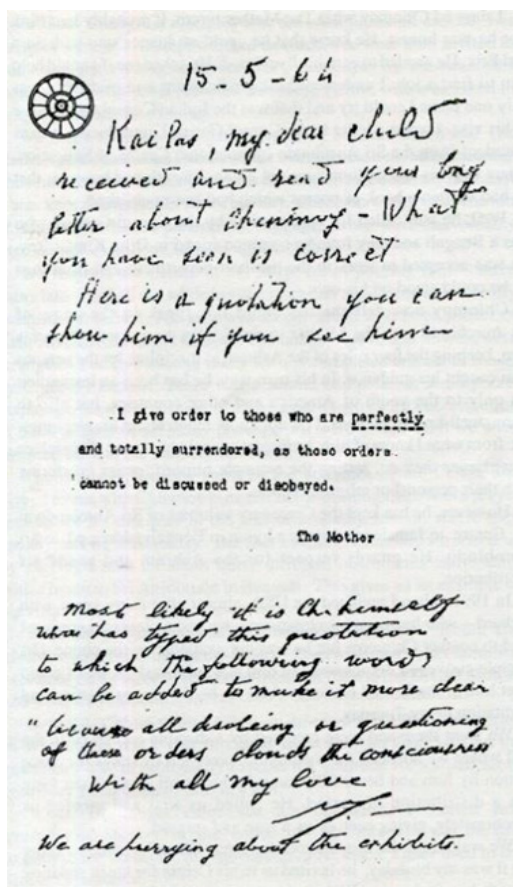 15-5-64
Kailas, my dear child
received and read your long
letter about Chinmoy - What
you have seen is correct
Here is a quotation you can
show him if you see him
I give order to those who are perfectly
and totally surrendered, as those orders
cannot be discussed or disobeyed.
The Mother
most likely it is Ch. himself
who has typed this quotation
to which the following words
can be added to make it more clear
"because all disobeing or questioning
of these orders clouds the consciousness
With all my love
We are hurrying about the exhibits.